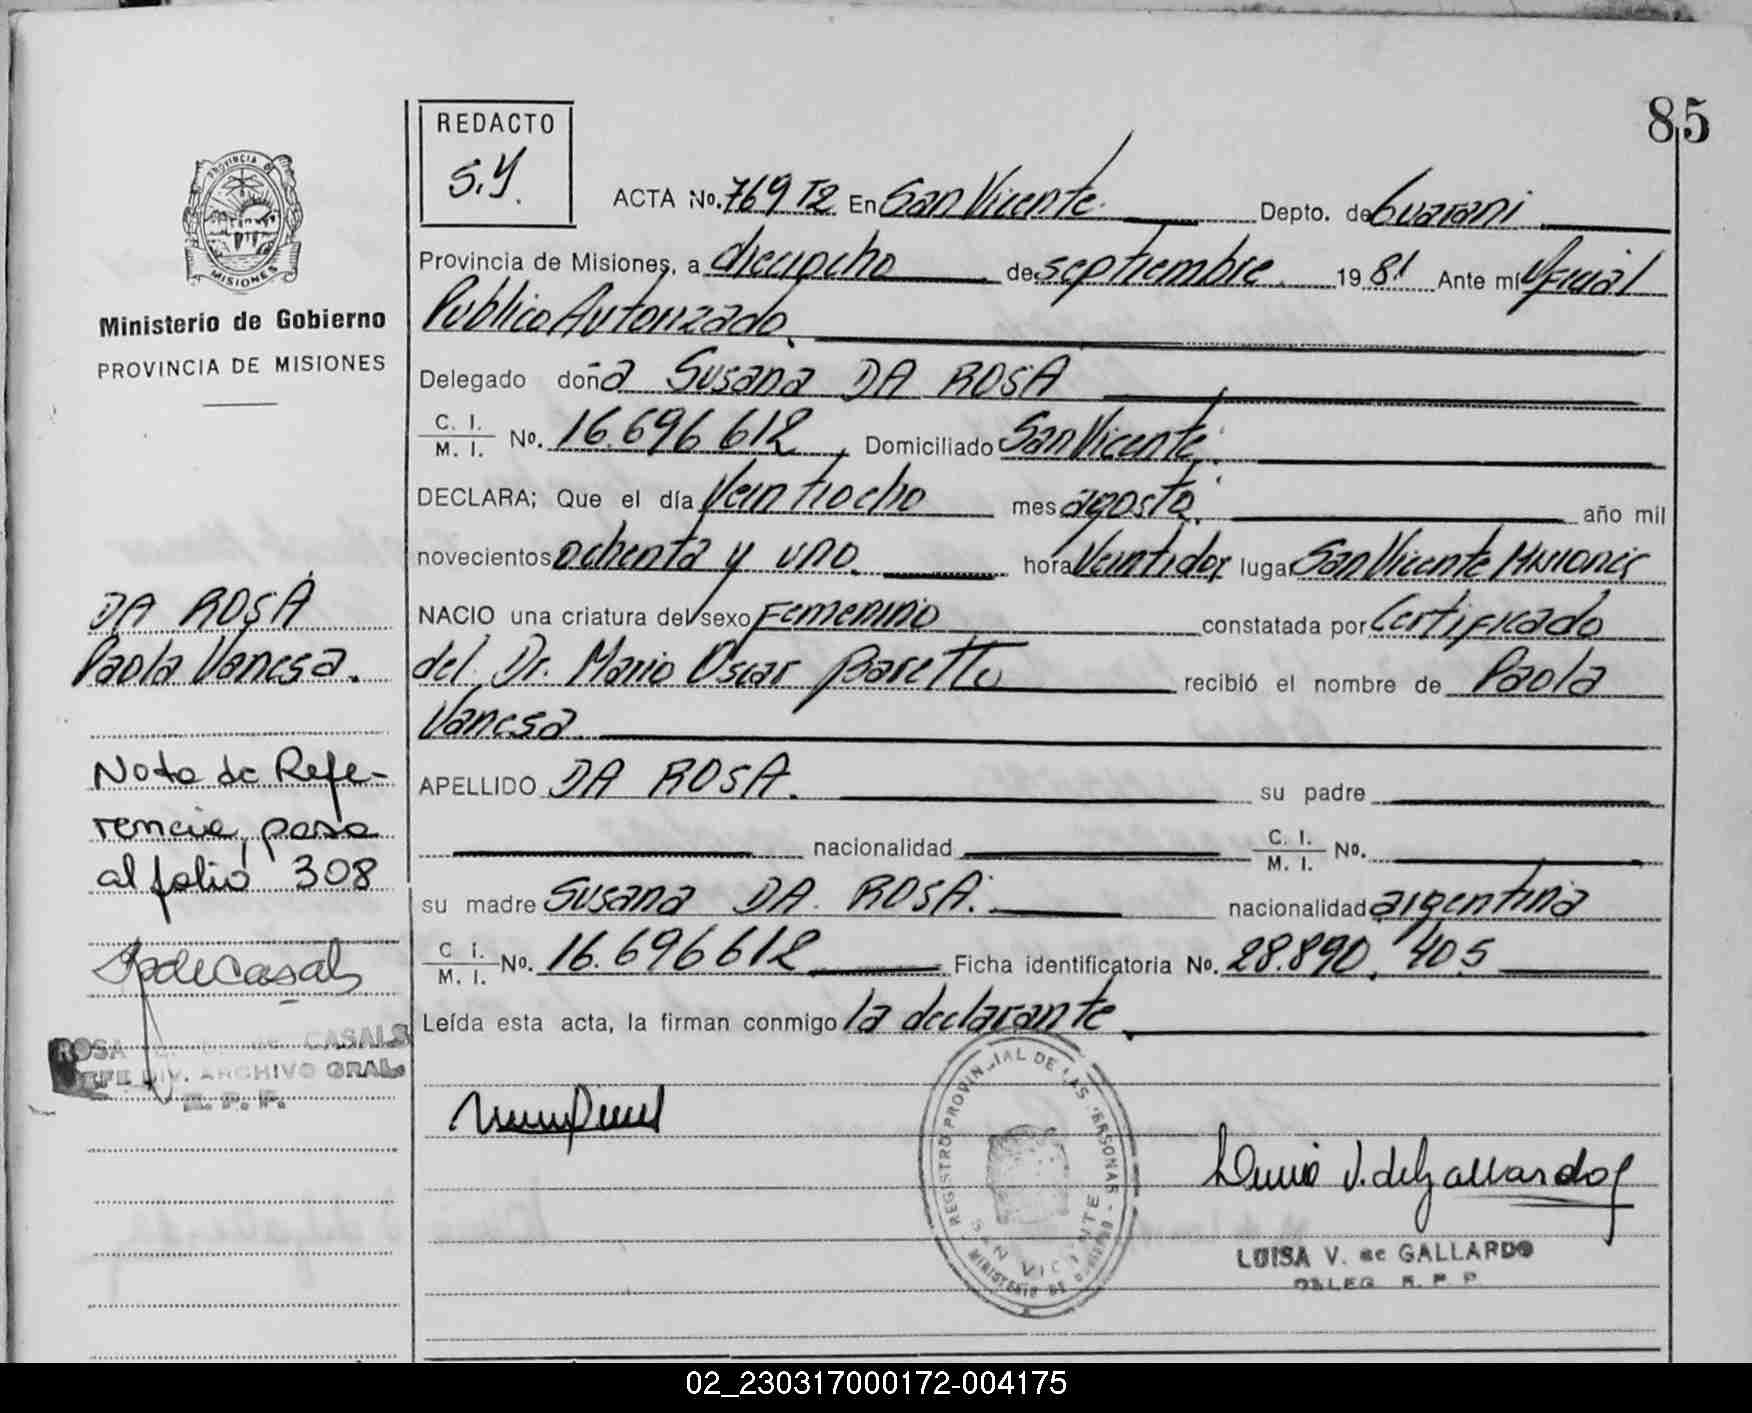 85
REDACTO
S.Y.
PROVINCIA DE MISIONES
Ministerio de Gobierno
PROVINCIA DE MISIONES
ACTA No. 769 T2 En San Vicente. Depto. de Guarani
Provincia de Misiones, a dieciocho de septiembre 1981 Ante mí Oficial
Publico Autorizado.
Delegado doña Susana DA ROSA
C. I. / M. I. No. 16.696.612, Domiciliado San Vicente.
DECLARA; Que el día Veintiocho mes agosto. año mil
novecientos ochenta y uno. hora Veintidos lugar San Vicente Misiones
NACIO una criatura del sexo Femenino constatada por Certificado
del Dr. Mario Oscar Baretto recibió el nombre de Paola
Vanesa
APELLIDO DA ROSA. su padre
nacionalidad C. I. / M. I. No.
su madre Susana DA ROSA. nacionalidad argentina
C. I. / M. I. No. 16.696612 Ficha identificatoria No. 28.890.405
Leída esta acta, la firman conmigo la declarante.
DA ROSA
Paola Vanesa.
Nota de Refe-
rencia, pasa
al folio 308
ROSA de CASALS
JEFE DIV. ARCHIVO GRAL.
R. P. P.
REGISTRO PROVINCIAL DE LAS PERSONAS
SAN VICENTE
MINISTERIO DE GOBIERNO
V. de Gallardo
LUISA V. de GALLARDO
DELEG. R. P. P.
02_230317000172-004175